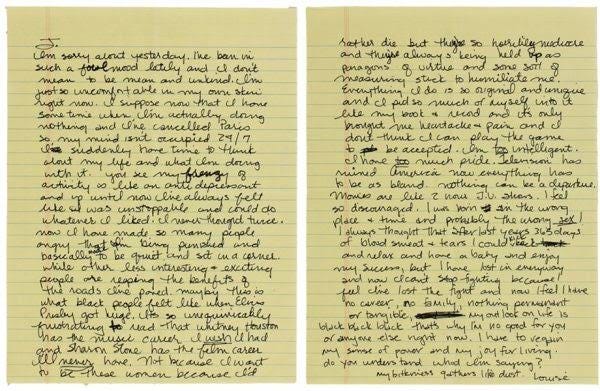 J.
I'm sorry about yesterday. I've been in
such a foul mood lately and I don't
mean to be mean and unkind. I'm
just so uncomfortable in my own skin
right now. I suppose now that I have
some time when I'm actually doing
nothing and I've cancelled Paris
so my mind isn't occupied 24/7
I suddenly have time to think
about my life and what I'm doing
with it. you see my frenzy of
activity is like an anti depressant
and up until now I've always felt
like I was unstoppable and could do
whatever I liked. I never thought twice.
now I have made so many people
angry that I'm being punished and
basically made to be quiet and sit in a corner.
while other less interesting & exciting
people are reaping the benefits of
the roads I've paved. maybe this is
what black people felt like when Elvis
Presley got huge. It's so unequivocally
frustrating to read that Whitney Houston
has the music career I wish I had
and Sharon Stone has the film career
I'll never have. Not because I want
to be these women because I'd
rather die but they're so horribly mediocre
and they're always being held up as
paragons of virtue and some sort of
measuring stick to humiliate me.
Everything I do is so original and unique
and I put so much of myself into it
like my book & record and it's only
brought me headaches & pain and I
don't think I can play the game
to be accepted. I'm too intelligent.
I have too much pride. Television has
ruined America now everything has
to be so bland. nothing can be a departure.
Movies are like 2 hour T.V. shows. I feel
so discouraged. I was born in the wrong
place & time and probably the wrong sex!
I always thought that after last years 365 days
of blood sweat & tears I could
and relax and have a baby and enjoy
my success, but I have lost in everyway
and now I can't stop fighting because I
feel I've lost the fight and now I feel I have
no career, no family, nothing permanent
or tangible, my outlook on life is
black black black thats why I'm no good for you
or anyone else right now. I have to regain
my sense of power and my joy for living.
do you understand what I'm saying?
my bitterness gathers like dust.
Louise